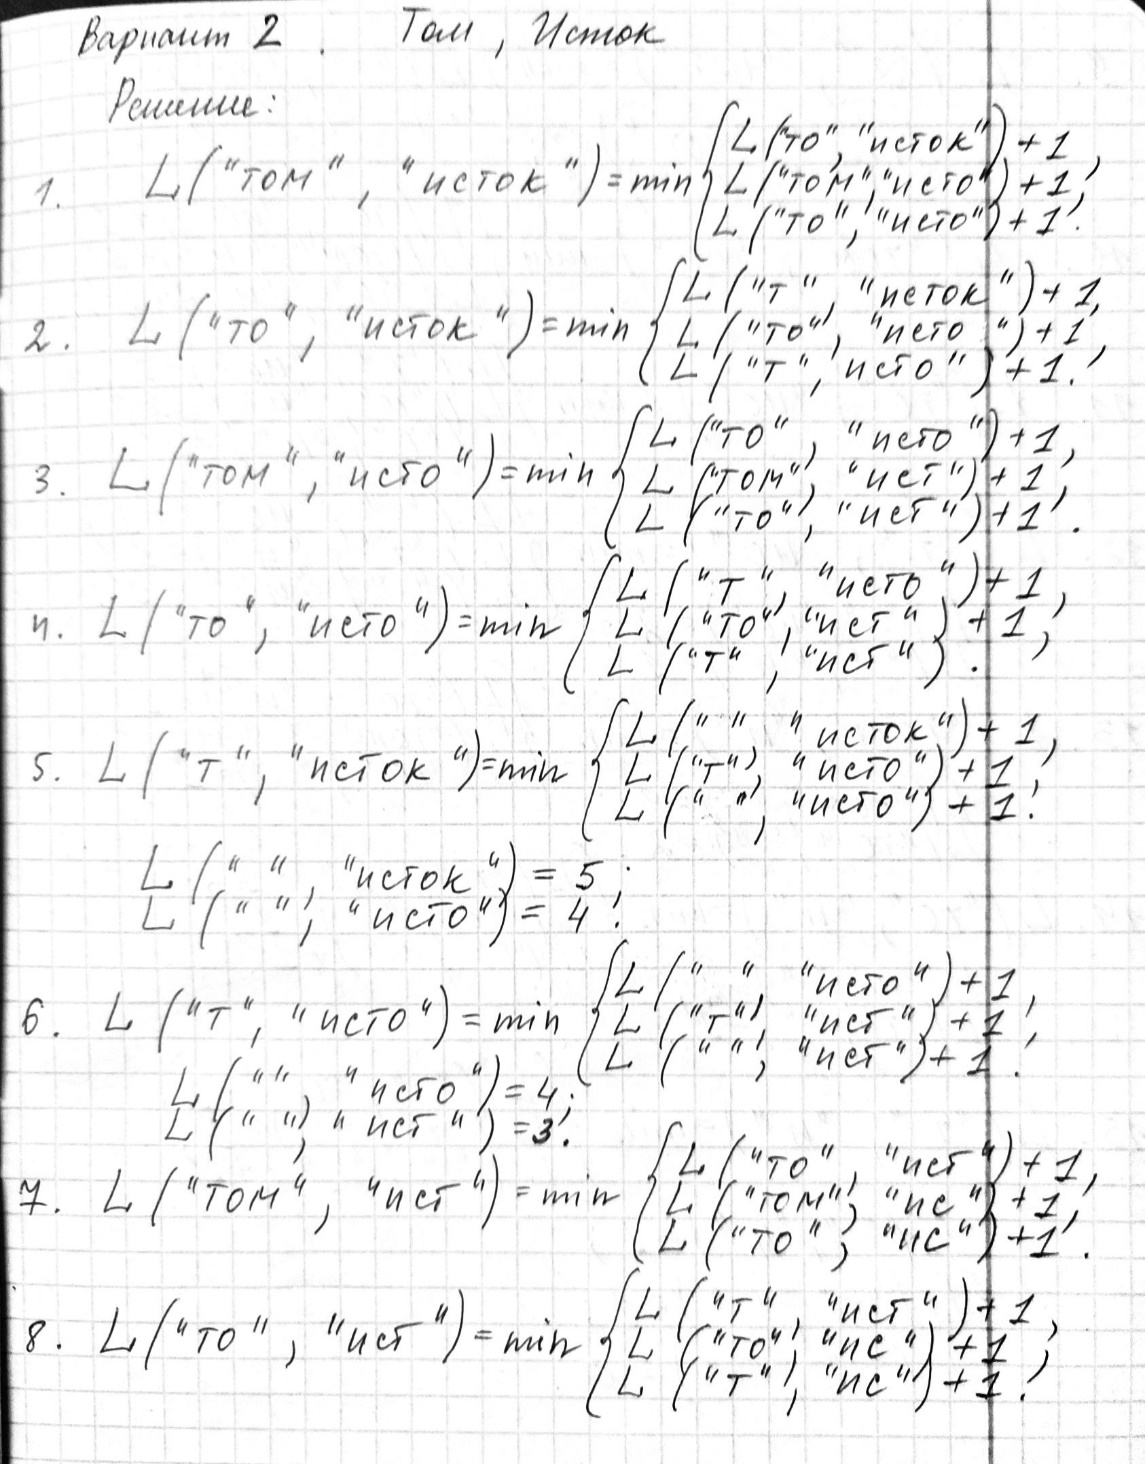 Вариант 2. Том, Исток
Решение:
1. L("том", "исток") = min { L("то", "исток") + 1,
L("том", "исто") + 1,
L("то", "исто") + 1.
2. L("то", "исток") = min { L("т", "исток") + 1,
L("то", "исто") + 1,
L("т", исто") + 1.
3. L("том", "исто") = min { L("то", "исто") + 1,
L("том", "ист") + 1,
L("то", "ист") + 1.
4. L("то", "исто") = min { L("т", "исто") + 1,
L("то", "ист") + 1,
L("т", "ист").
5. L("т", "исток") = min { L(" ", "исток") + 1,
L("т", "исто") + 1,
L(" ", "исто") + 1.
L(" ", "исток") = 5;
L(" ", "исто") = 4.
6. L("т", "исто") = min { L(" ", "исто") + 1,
L("т", "ист") + 1,
L(" ", "ист") + 1.
L(" ", "исто") = 4;
L(" ", "ист") = 3.
7. L("том", "ист") = min { L("то", "ист") + 1,
L("том", "ис") + 1,
L("то", "ис") + 1.
8. L("то", "ист") = min { L("т", "ист") + 1,
L("то", "ис") + 1,
L("т", "ис") + 1.